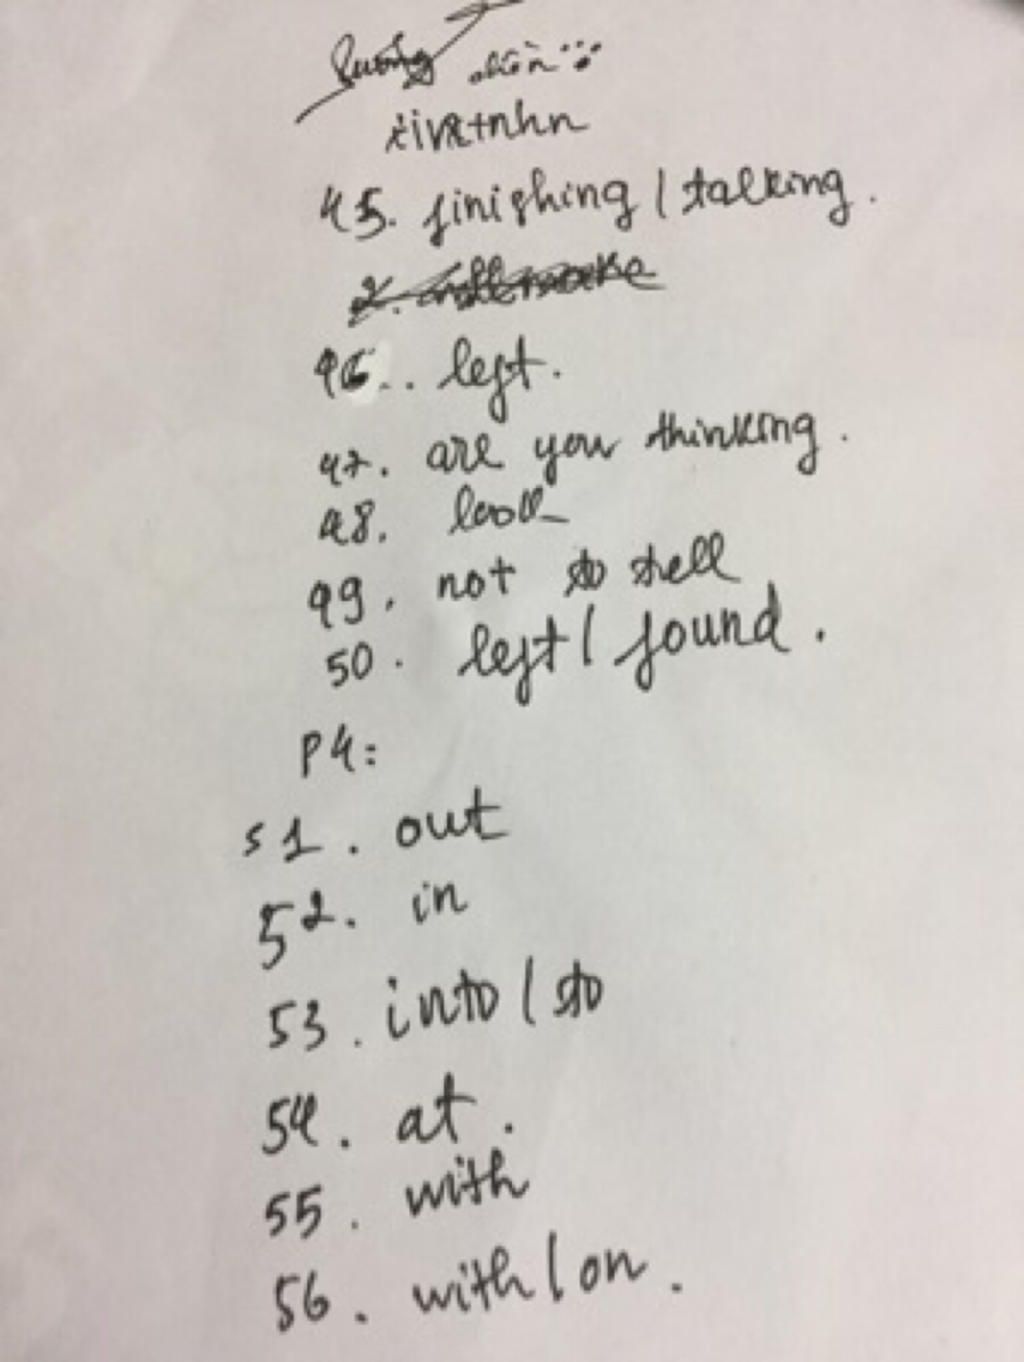 45. finishing / talking.
46.. left.
47. are you thinking.
48. look
49. not to tell
50. left / found.
P4:
51. out
52. in
53. into / to
54. at.
55. with
56. with / on.